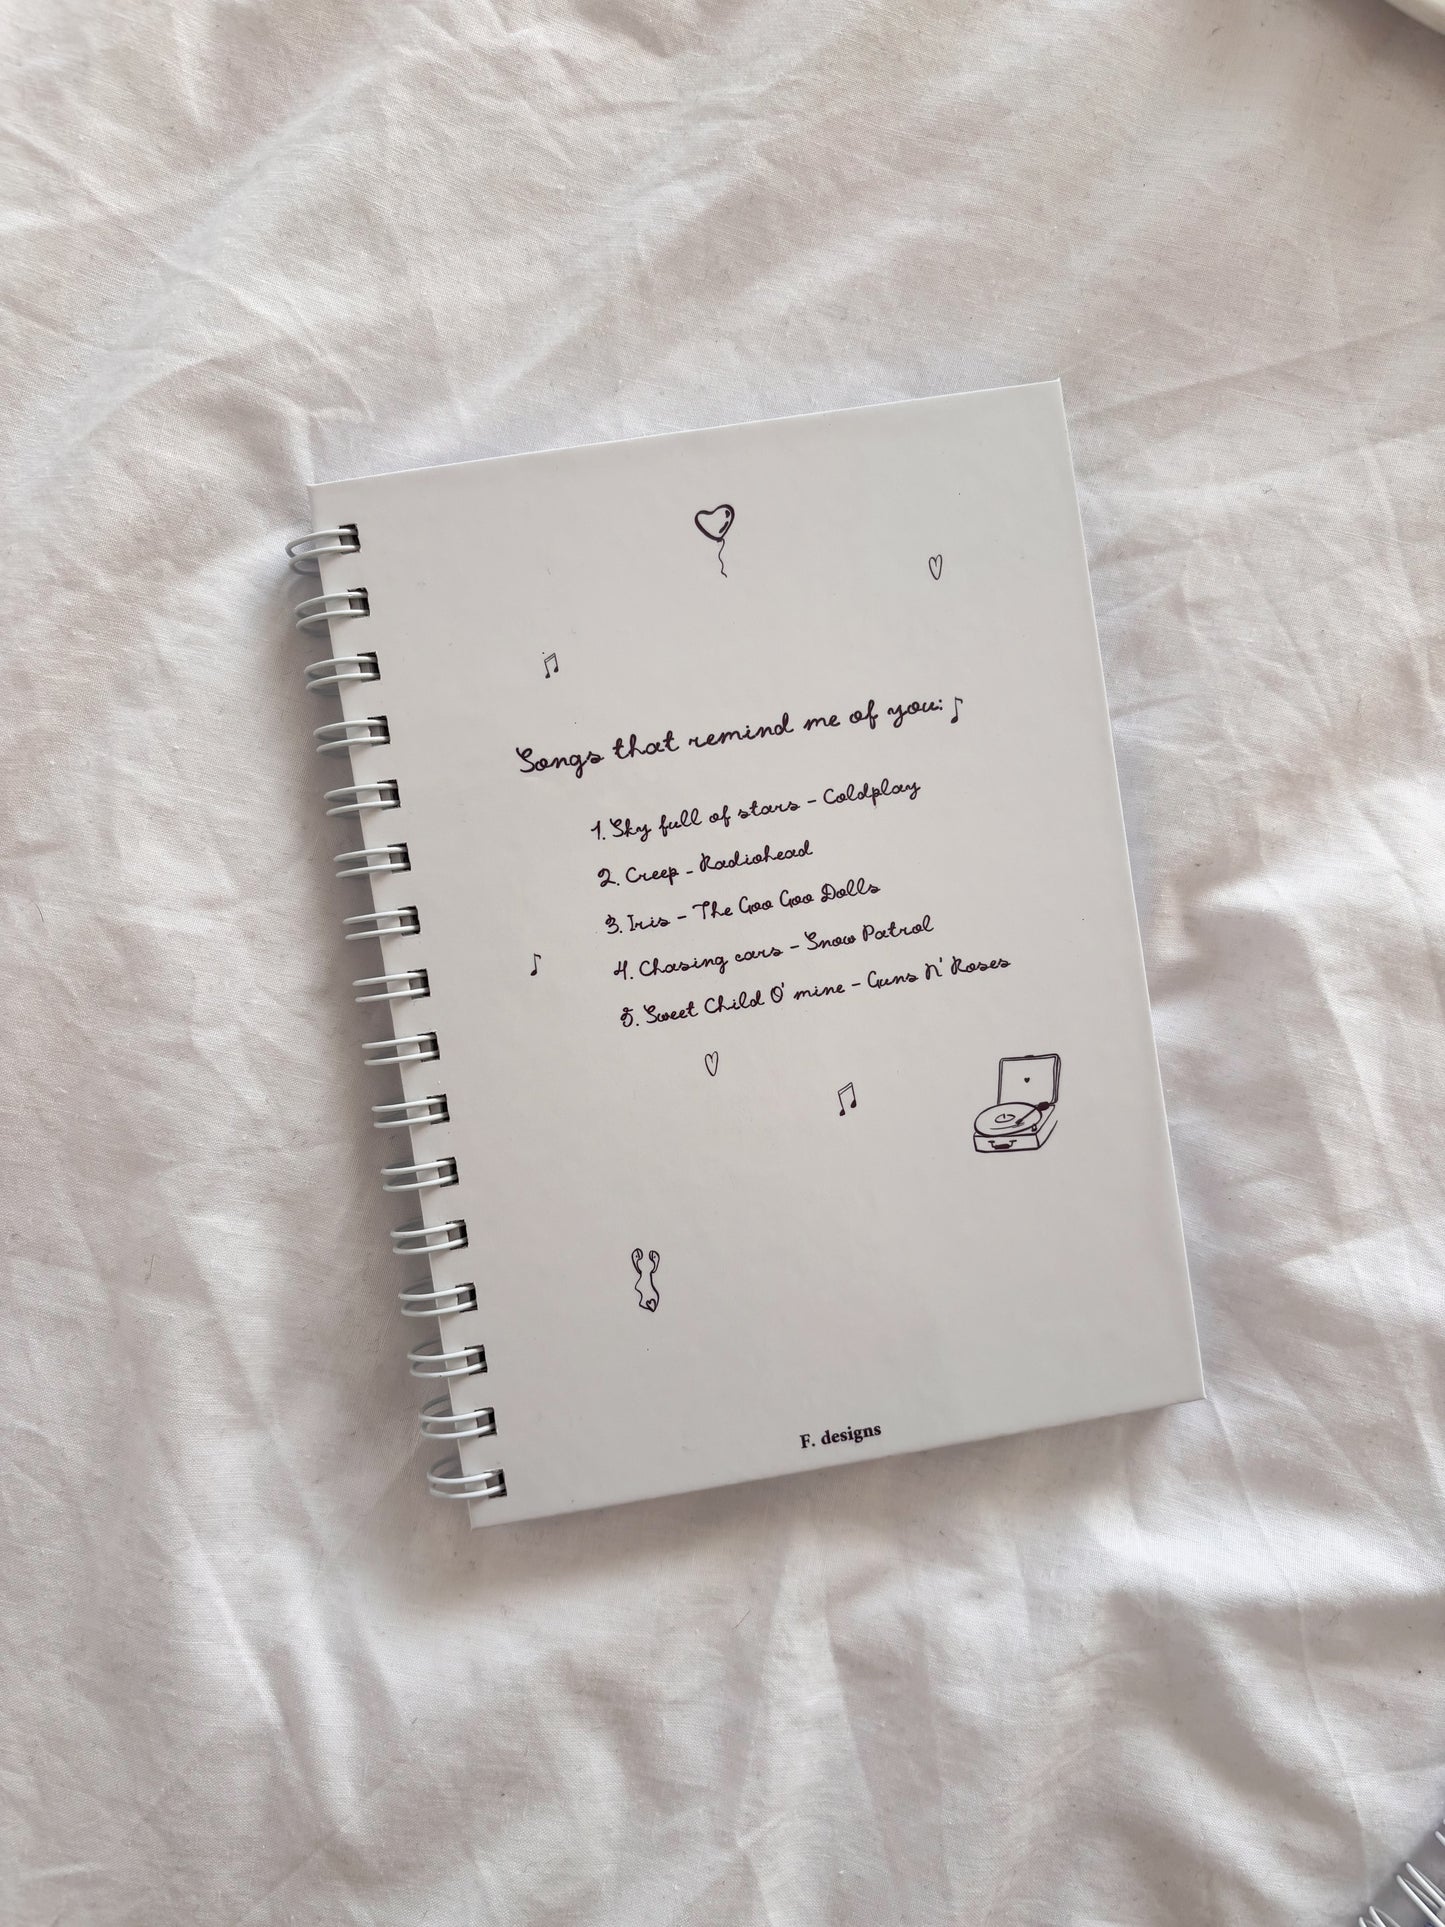 Songs that remind me of you:
1. Sky full of stars - Coldplay
2. Creep - Radiohead
3. Iris - The Goo Goo Dolls
4. Chasing cars - Snow Patrol
5. Sweet Child O' mine - Guns N' Roses
F. designs